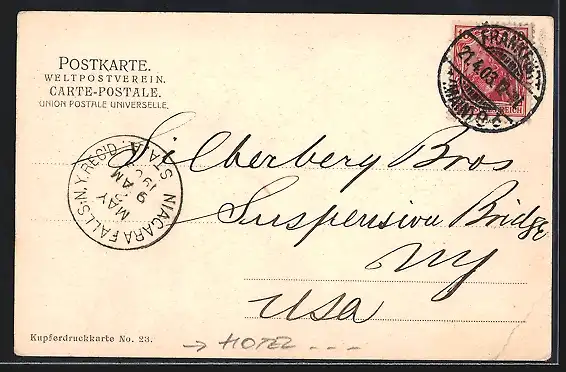 POSTKARTE.
WELTPOSTVEREIN.
CARTE-POSTALE.
UNION POSTALE UNIVERSELLE.
FRANKFURT
21.4.03
(MAIN)
REICH
NIAGARA FALLS, N.Y. REC'D.
MAY
9 AM
190
Silberberg Bros
Suspension Bridge
NY
USA
Kupferdruckkarte No. 23.
→ HOTEL ...